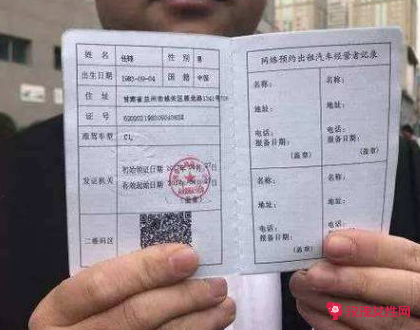 姓名 性别 男
出生日期 国籍 中国
住址 甘肃省兰州市城关区
证号
准驾车型 C1
发证机关
初始领证日期
有效起始日期
(盖章)
二维码区
网络预约出租汽车经营者记录
名称: 名称:
地址: 地址:
电话: 电话:
报备日期: 报备日期:
(盖章) (盖章)
名称: 名称:
地址: 地址:
电话: 电话:
报备日期: 报备日期:
(盖章) (盖章)